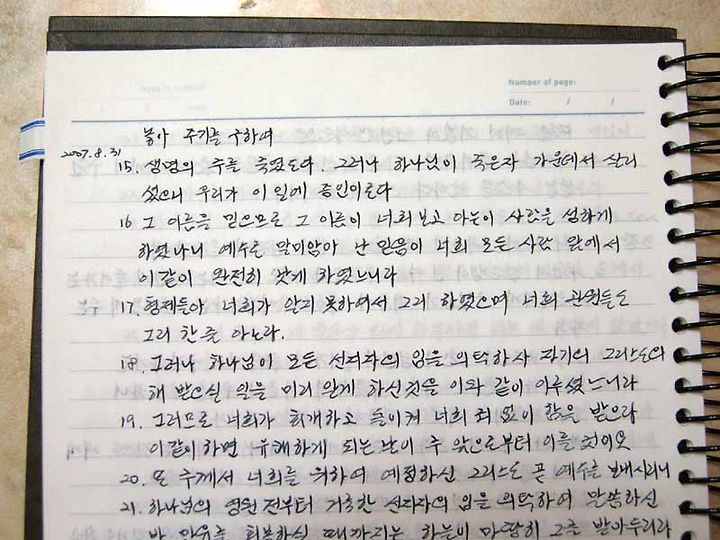 Number of page:
Date: / /
놓아 주기를 구하여
2007.8.31
15. 생명의 주를 죽였도다. 그러나 하나님이 죽은자 가운데서 살리
셨으니 우리가 이 일에 증인이로다
16 그 이름을 믿으므로 그 이름이 너희 보고 아는 이 사람을 성하게
하였나니 예수로 말미암아 난 믿음이 너희 모든 사람 앞에서
이같이 완전히 낫게 하였느니라
17. 형제들아 너희가 알지 못하여서 그리 하였으며 너희 관원들도
그리 한 줄 아노라.
18. 그러나 하나님이 모든 선지자의 입을 의탁하사 자기의 그리스도의
해 받으실 일을 미리 알게 하신것을 이와 같이 이루셨느니라
19. 그러므로 너희가 회개하고 돌이켜 너희 죄 없이 함을 받으라
이같이하면 유쾌하게 되는 날이 주 앞으로부터 이를 것이요
20. 또 주께서 너희를 위하여 예정하신 그리스도 곧 예수를 보내시리니
21. 하나님이 영원 전부터 거룩한 선지자의 입을 의탁하여 말씀하신
바 만유를 회복하실 때까지는 하늘이 마땅히 그를 받아두리라